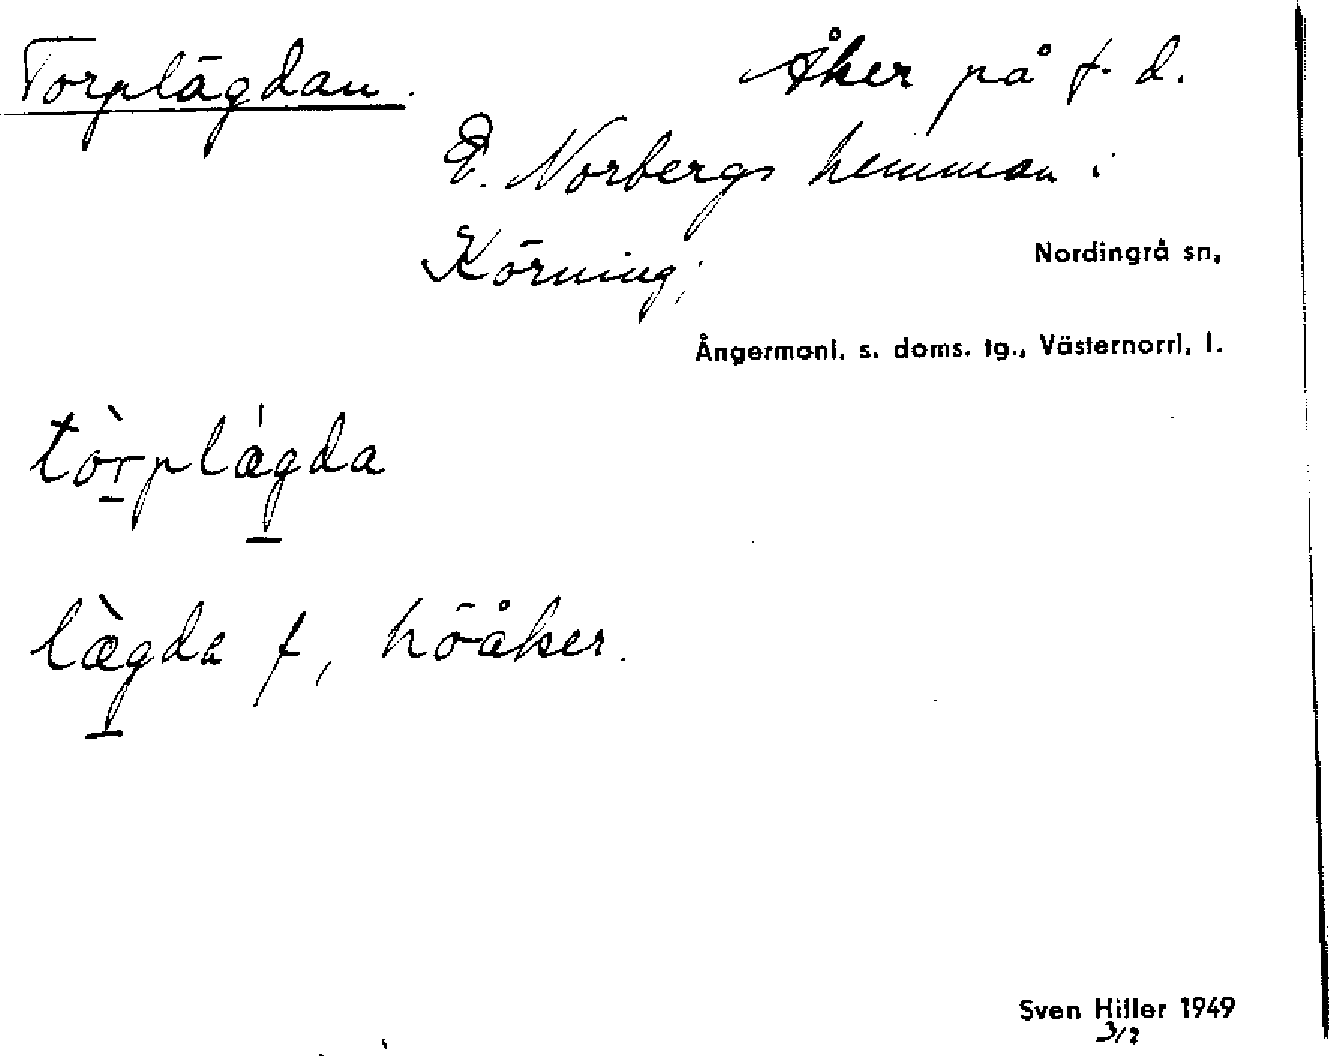 Torplägdan. Åker på f. d.
E. Norbergs hemman i
Körning; Nordingrå sn,
Ångermanl. s. doms. tg., Västernorrl. l.
tòrplǽgda
lægda f, höåker.
Sven Hiller 1949
3/2